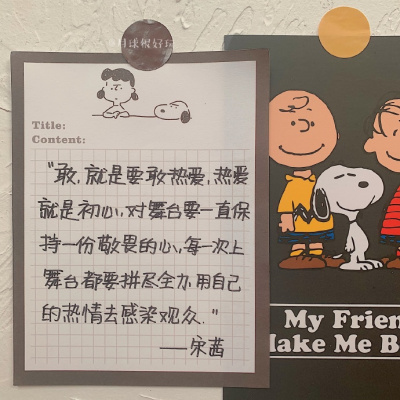 Title:
Content:
“敢,就是要敢热爱,热爱
就是初心,对舞台要一直保
持一份敬畏的心,每一次上
舞台都要拼尽全力,用自己
的热情去感染观众.”
——宋茜
My Frien
Make Me B